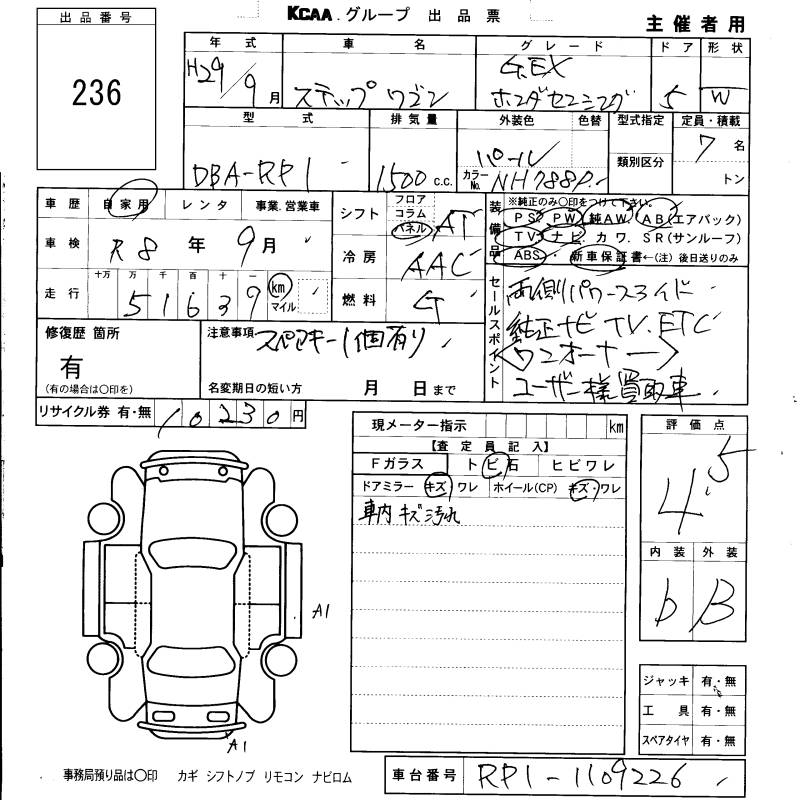 KCAA.グループ 出品票
主催者用
出品番号
236
年式 車名 グレード ドア 形状
H29/9月 ステップワゴン G.EX ホンダセンシング 5 W
型式 排気量 外装色 色替 型式指定 定員・積載
DBA-RP1 1500 c.c. パール 類別区分 7名
カラーNo. NH788P トン
車歴 自家用 レンタ 事業.営業車
車検 R8年 9月
十万 万 千 百 十 一
走行 51639 km マイル
シフト フロア コラム パネル AT
冷房 AAC
燃料 G
装備品 ※純正のみ〇印をつけて下さい。
PS. PW. 純AW. AB(エアバック)
TV. ナビ. カワ. SR(サンルーフ)
ABS. 新車保証書←(注)後日送りのみ
セールスポイント
両側パワースライド
純正ナビ TV.ETC
<ワンオーナー>
ユーザー様買取車
修復歴 箇所
有
(有の場合は〇印を)
注意事項 スペアキー1個有り
名変期日の短い方 月 日まで
リサイクル券 有・無 10230円
現メーター指示 km
【査定員記入】
Fガラス トビ石 ヒビワレ
ドアミラー キズ ワレ ホイール(CP) キズ・ワレ
車内キズ汚れ
評価点
4.5
内装 外装
b B
A1
A1
ジャッキ 有・無
工具 有・無
スペアタイヤ 有・無
事務局預り品は〇印 カギ シフトノブ リモコン ナビロム
車台番号 RP1-1109226